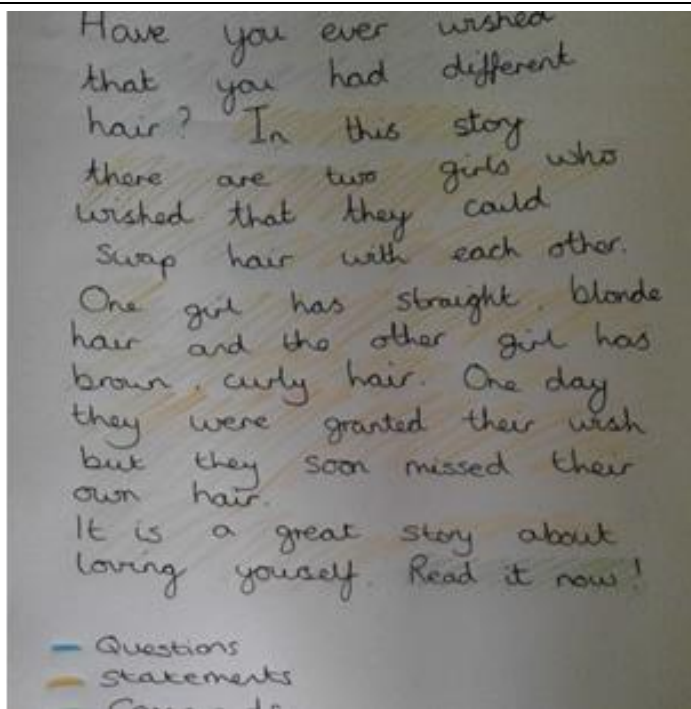 Have you ever wished
that you had different
hair? In this story
there are two girls who
wished that they could
swap hair with each other.
One girl has straight, blonde
hair and the other girl has
brown, curly hair. One day
they were granted their wish
but they soon missed their
own hair.
It is a great story about
loving yourself. Read it now!
Questions
Statements
Commands